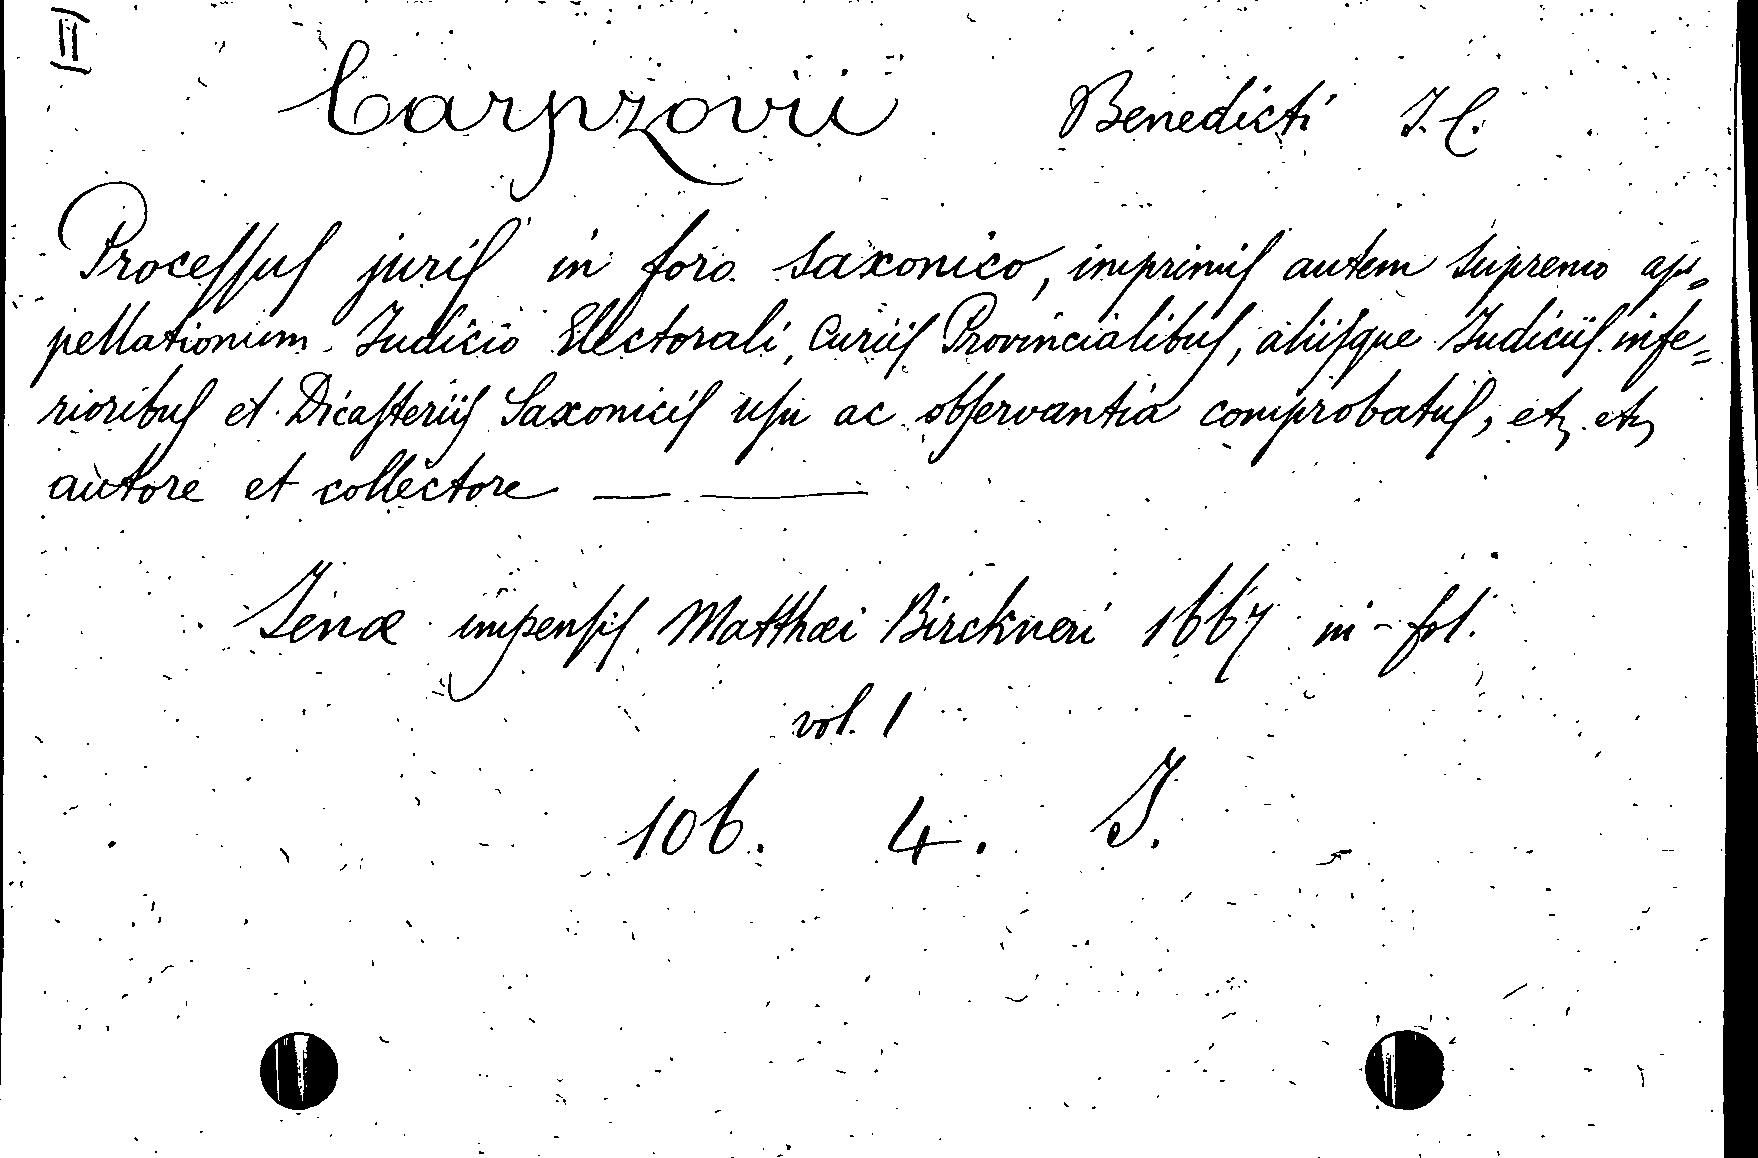 II
Carpzovii Benedicti J. C.
Processus juris in foro Saxonico, imprimis autem supremo ap=
pellationum Judicio Electorali, Curiis Provincialibus, aliisque Judiciis infe=
rioribus et Dicasteriis Saxonicis usu ac observantia comprobatus, etz etz
autore et collectore — —
Jenæ impensis Matthæi Birckneri 1667 in-fol.
vol. 1
106. 4. J.